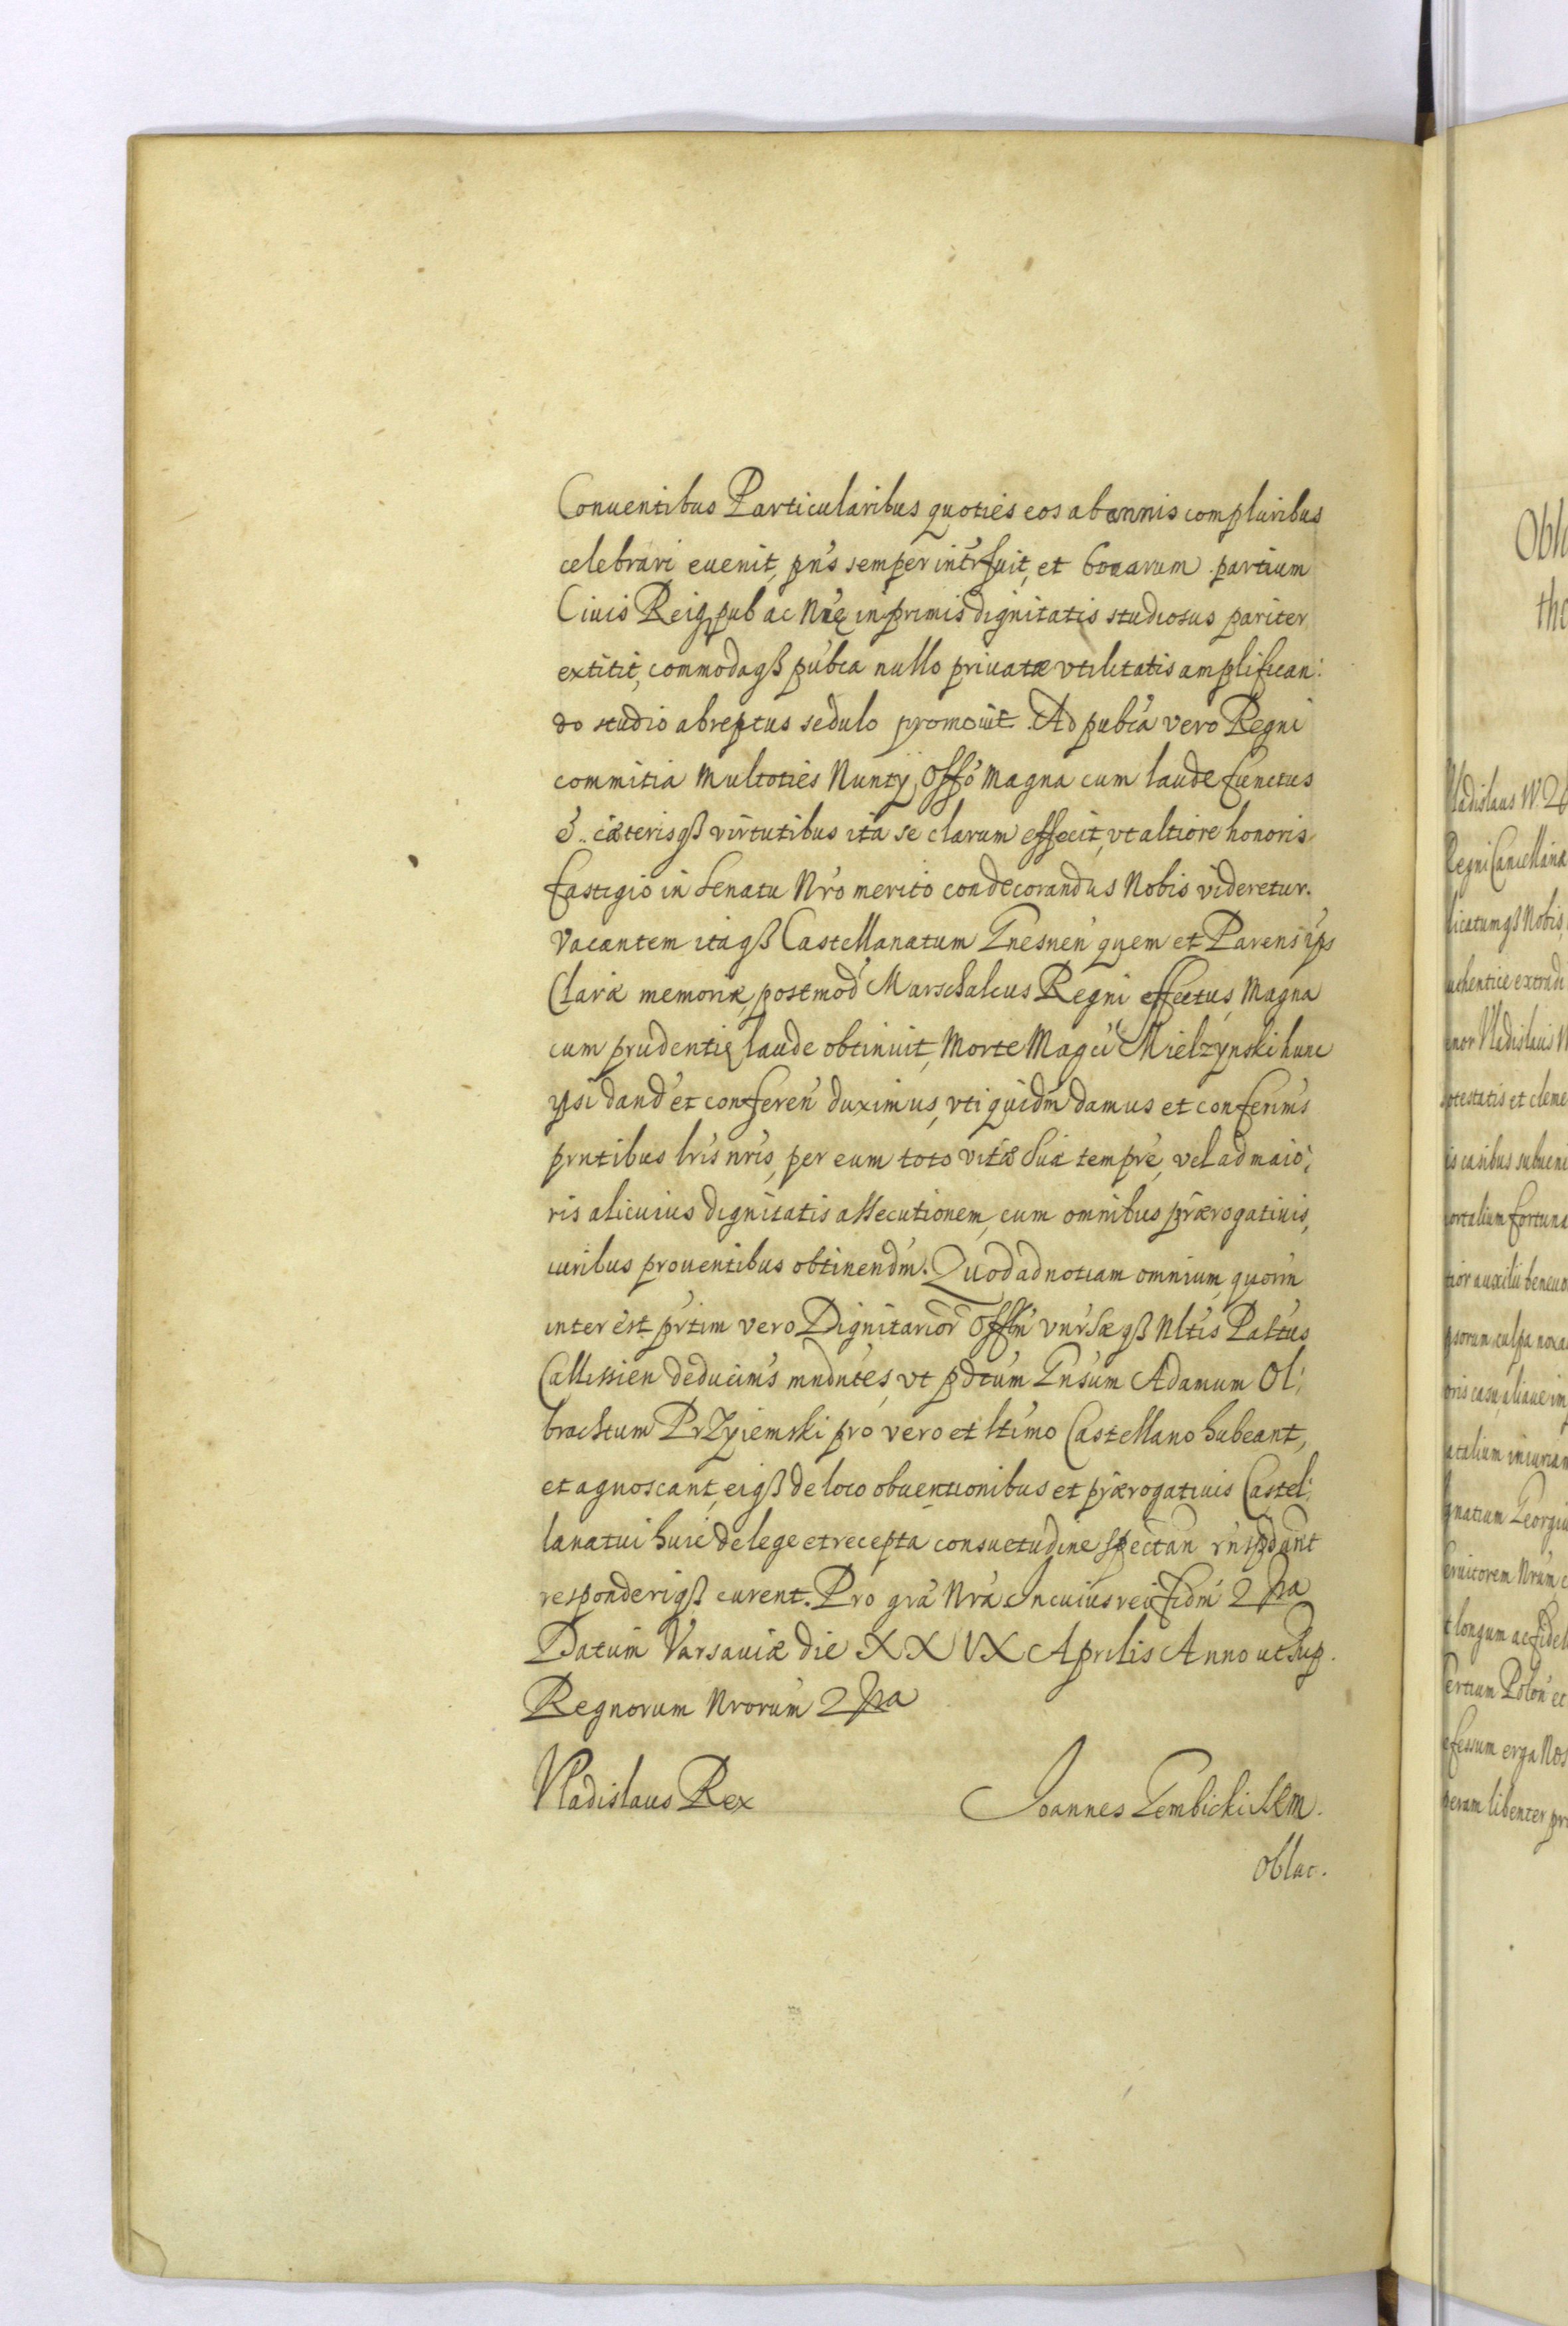 Conuentibus Particularibus quoties eos ab annis compluribus
celebrari euenit, pn's semper int'rfuit, et bonarum partium
Ciuis Reiq pub ac Nrę inprimis dignitatis studiosus pariter
extitit, commodaqß pub'ca nullo priuatæ vtilitatis amplifican:
do studio abreptus sedulo promouit. Ad pub'ca vero Regni
commitia Multoties Nuntÿ Offo' Magna cum laude functus
e'.. cæterisqß virtutibus ita se clarum effecit, vt altiore honoris
fastigio in Senatu Nro merito condecorandus Nobis videretur.
Vacantem itaqß Castellanatum Gnesnen' quem et Parens ip's
Claræ memoriæ, postmod' Marschalcus Regni effectus, Magna
cum prudentię laude obtinuit, Morte Mag'ci Mielzynski hunc
ipsi dand' et conferen' duximus, vti quidm' damus et conferim's
prntibus lris nris, per eum toto vitæ Suæ tempre, vel ad maio:
ris alicuius dignitatis assecutionem, cum omnibus prærogatiuis,
iuribus prouentibus obtinendm'. Quod ad notiam omnium, quorm'
inter est pr'tim vero Dignitarior' Offm' vnr'sæqß Nltis Paltus
Callissien deducim's mndntes, vt pdtum Gnsum Adamum Ol:
brachtum PrZyiemski pro vero et ltimo Castellano habeant,
et agnoscant, eiqß de loco obuentionibus et prærogatiuis Castel:
lanatui huic de lege et recepta consuetudine spectan rnspdant
responderiqß curent. Pro gra Nra In cuius rei fidm'
Datum Varsauiæ die XXVIX Aprilis Anno ut sup.
Regnorum Nrorum
Vladislaus Rex Joannes Gembicki Sem.
Oblat.
Obl
Vladislaus IV.
Regni Cancellariæ
licatumqß Nobis,
uthentice extradi
nor Vladislaus
otestatis et cleme
is casibus subueni
ortalium fortuna
tior auxilii beneuo
psorum culpa noxa
oris casu, aliaue im
atalium iniuriam
gnatum Georgiu
Seruitorem Nrum
t longum ac fidel
Tertium Polon' et
efessum erga Nos
peram libenter pr